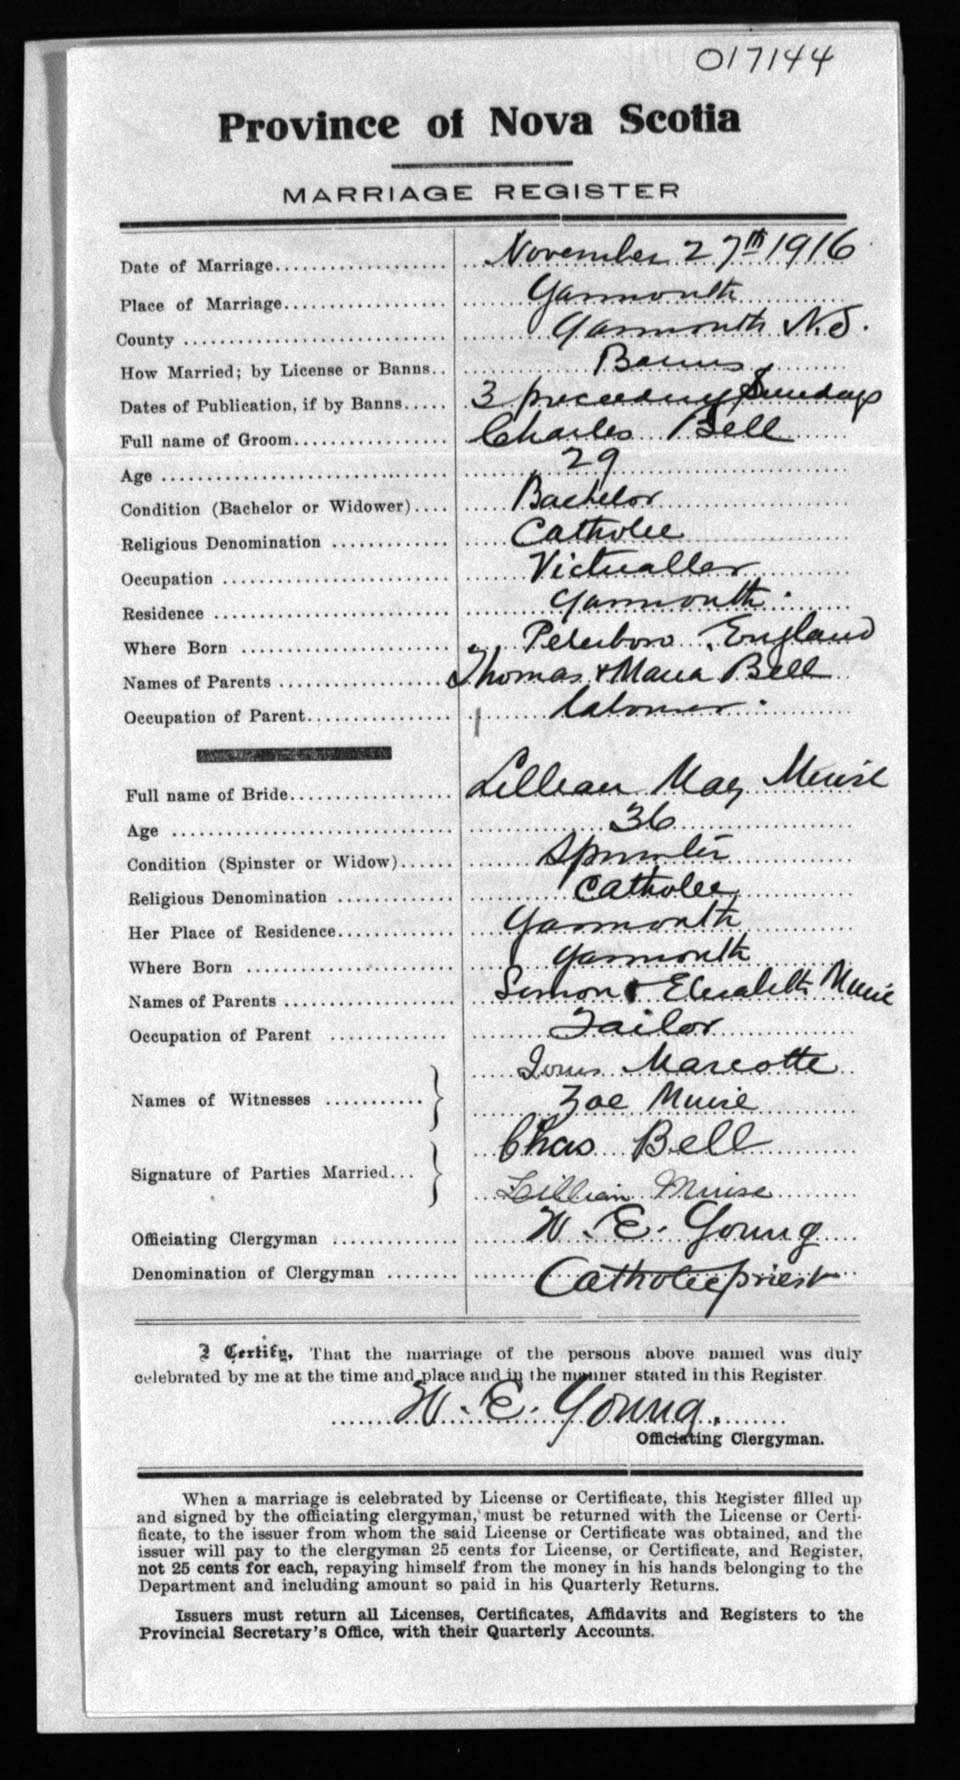 017144
Province of Nova Scotia
MARRIAGE REGISTER
Date of Marriage November 27th 1916
Place of Marriage Yarmouth
County Yarmouth N.S.
How Married; by License or Banns Banns
Dates of Publication, if by Banns 3 preceeding Sundays
Full name of Groom Charles Bell
Age 29
Condition (Bachelor or Widower) Bachelor
Religious Denomination Catholic
Occupation Victualler
Residence Yarmouth
Where Born Peterboro, England
Names of Parents Thomas & Maria Bell
Occupation of Parent labourer
Full name of Bride Lillian May Muise
Age 36
Condition (Spinster or Widow) Spinster
Religious Denomination Catholic
Her Place of Residence Yarmouth
Where Born Yarmouth
Names of Parents Simon & Elizabeth Muise
Occupation of Parent Tailor
Marcotte
Names of Witnesses Zoe Muise
Chas Bell
Signature of Parties Married
Lillian Muise
Officiating Clergyman W. E. Young
Denomination of Clergyman Catholic priest
I Certify, That the marriage of the persons above named was duly
celebrated by me at the time and place and in the manner stated in this Register.
W. E. Young.
Officiating Clergyman.
When a marriage is celebrated by License or Certificate, this Register filled up
and signed by the officiating clergyman, must be returned with the License or Certi-
ficate, to the issuer from whom the said License or Certificate was obtained, and the
issuer will pay to the clergyman 25 cents for License, or Certificate, and Register,
not 25 cents for each, repaying himself from the money in his hands belonging to the
Department and including amount so paid in his Quarterly Returns.
Issuers must return all Licenses, Certificates, Affidavits and Registers to the
Provincial Secretary's Office, with their Quarterly Accounts.